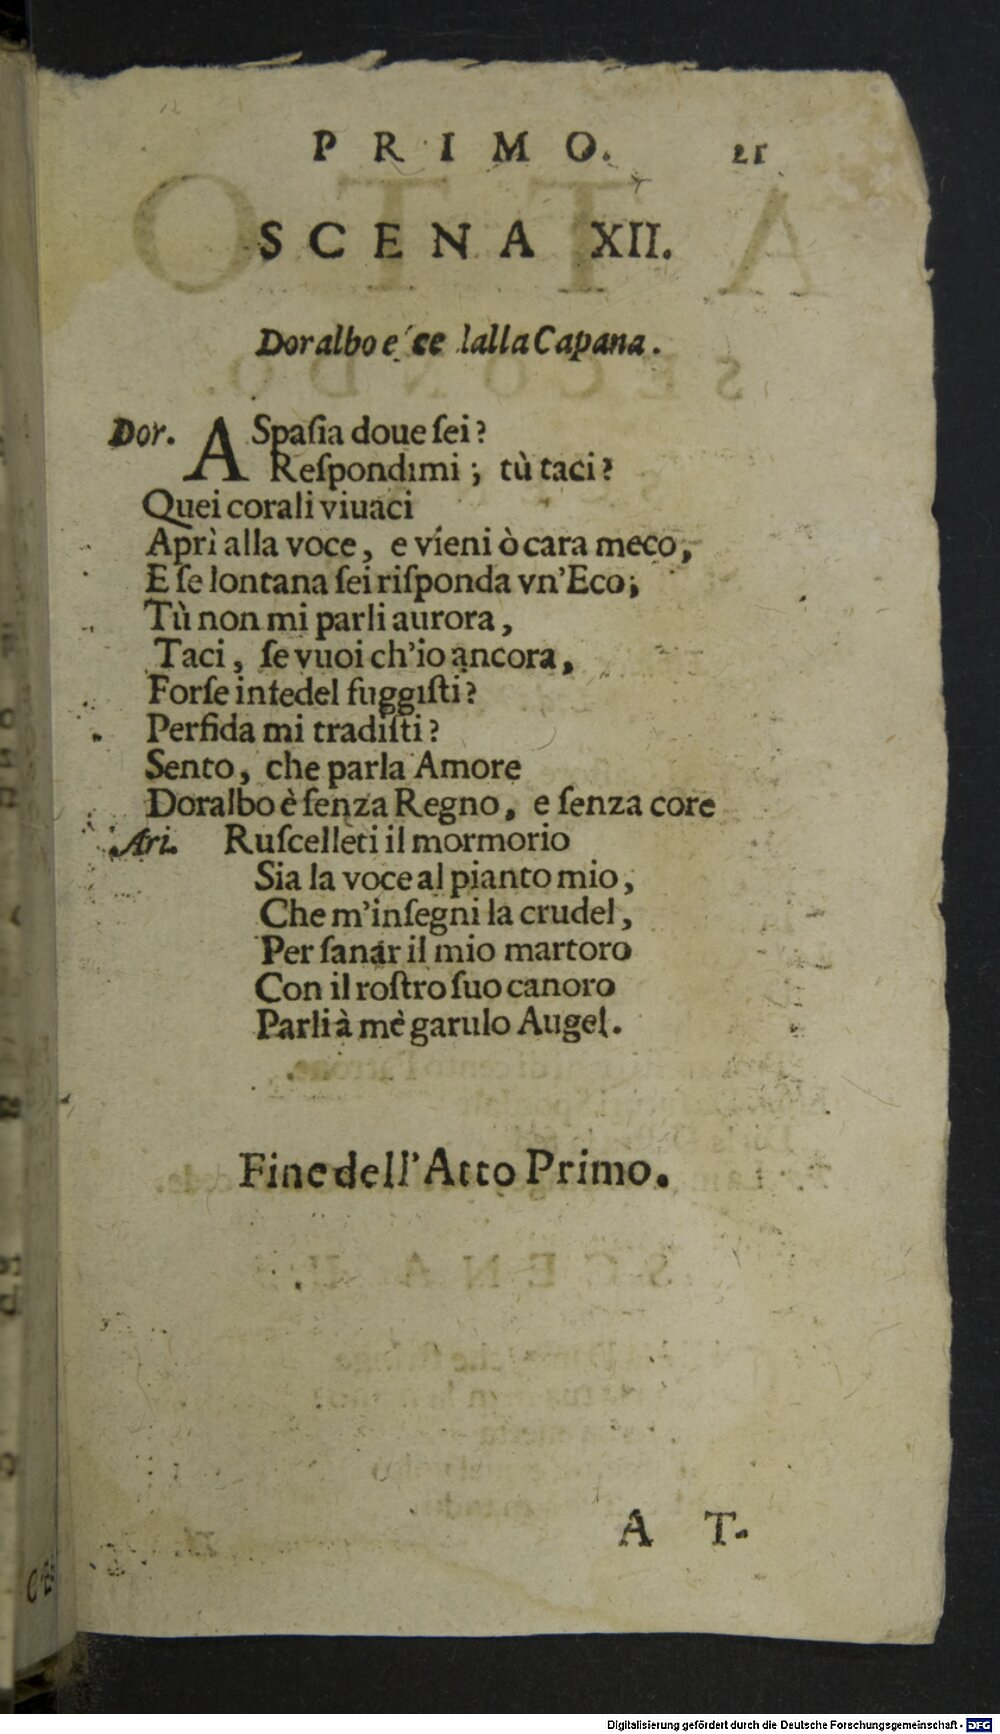 PRIMO. 21
SCENA XII.
Doralbo e´ce lalla Capana.
Dor. ASpaſia doue ſei?
Reſpondimi; tù taci?
Quei corali viuaci
Aprì alla voce, e vieni ò cara meco,
E ſe lontana ſei riſponda vn'Eco;
Tù non mi parli aurora,
Taci, ſe vuoi ch'io ancora,
Forſe infedel fuggiſti?
Perfida mi tradiſti?
Sento, che parla Amore
Doralbo è ſenza Regno, e ſenza core
Ari. Ruſcelleti il mormorio
Sia la voce al pianto mio,
Che m'inſegni la crudel,
Per ſanar il mio martoro
Con il roſtro ſuo canoro
Parli à mè garulo Augel.
Fine dell'Atto Primo.
AT-
Digitalisierung gefördert durch die Deutsche Forschungsgemeinschaft - DFG